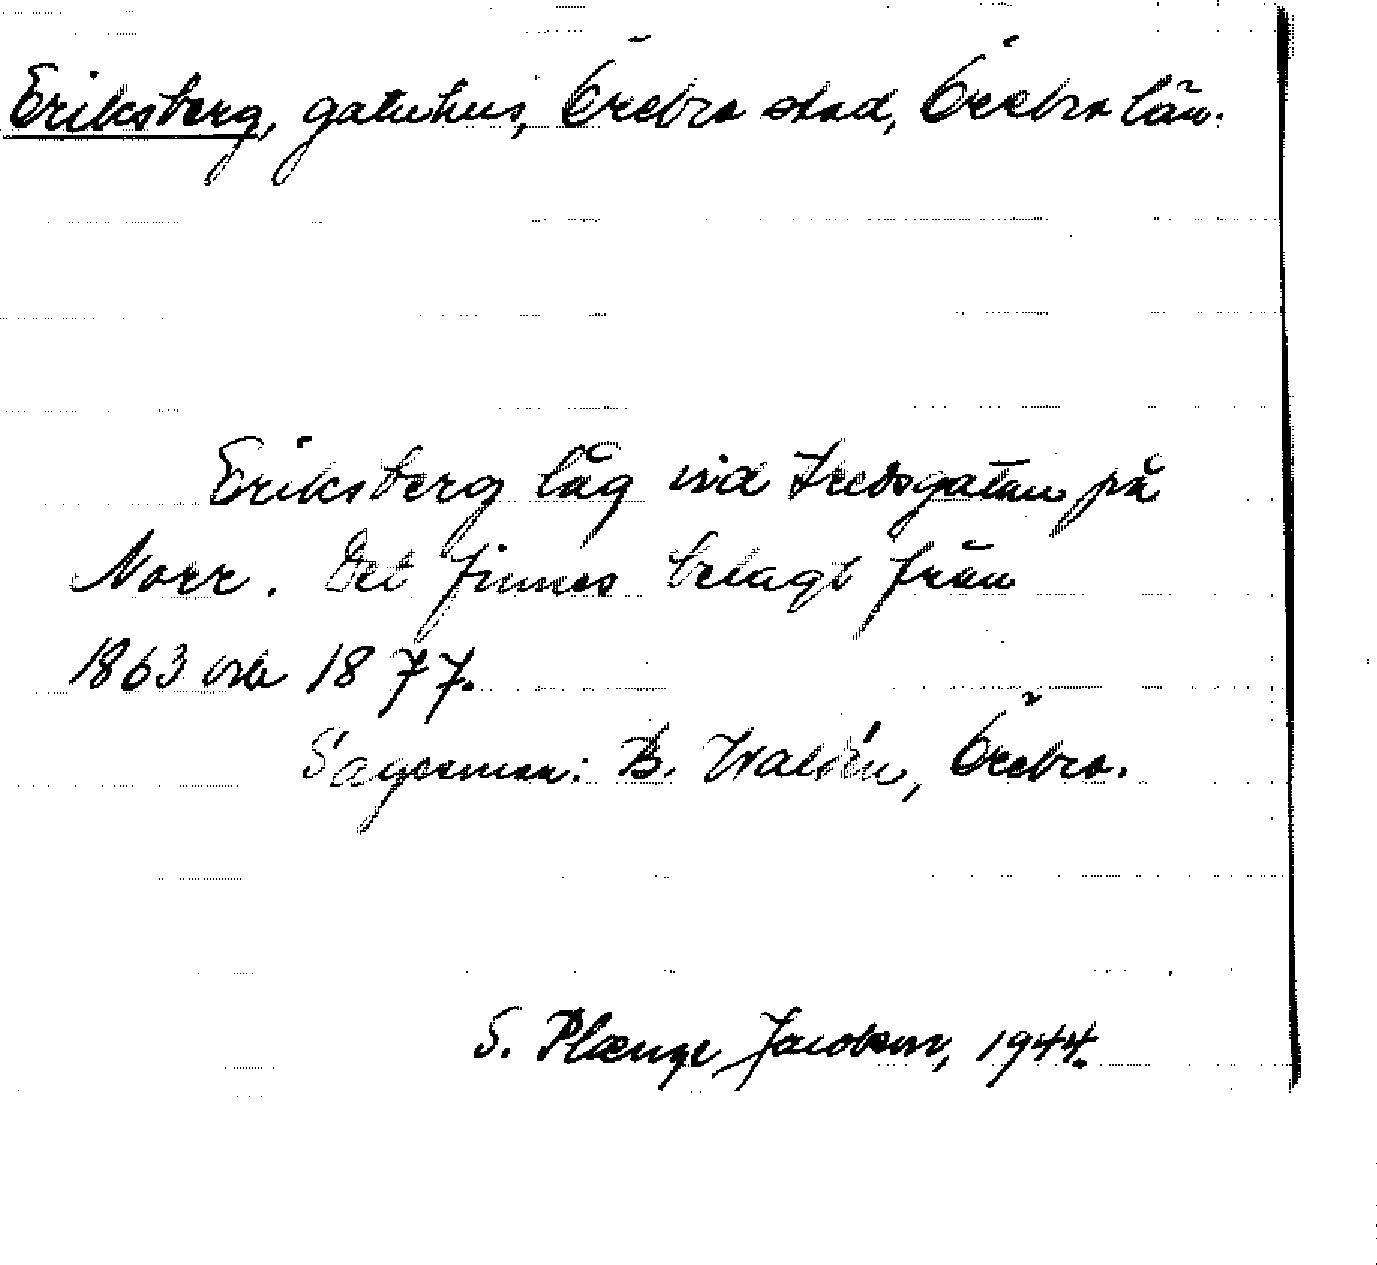 Eriksberg, gatuhus, Örebro stad, Örebro län.
Eriksberg låg vid Fredsgatan på
Norr. Det finnes belagt från
1863 och 1877.
Sagesman: B. Waldén, Örebro.
S. Plænge Jacobson, 1944.